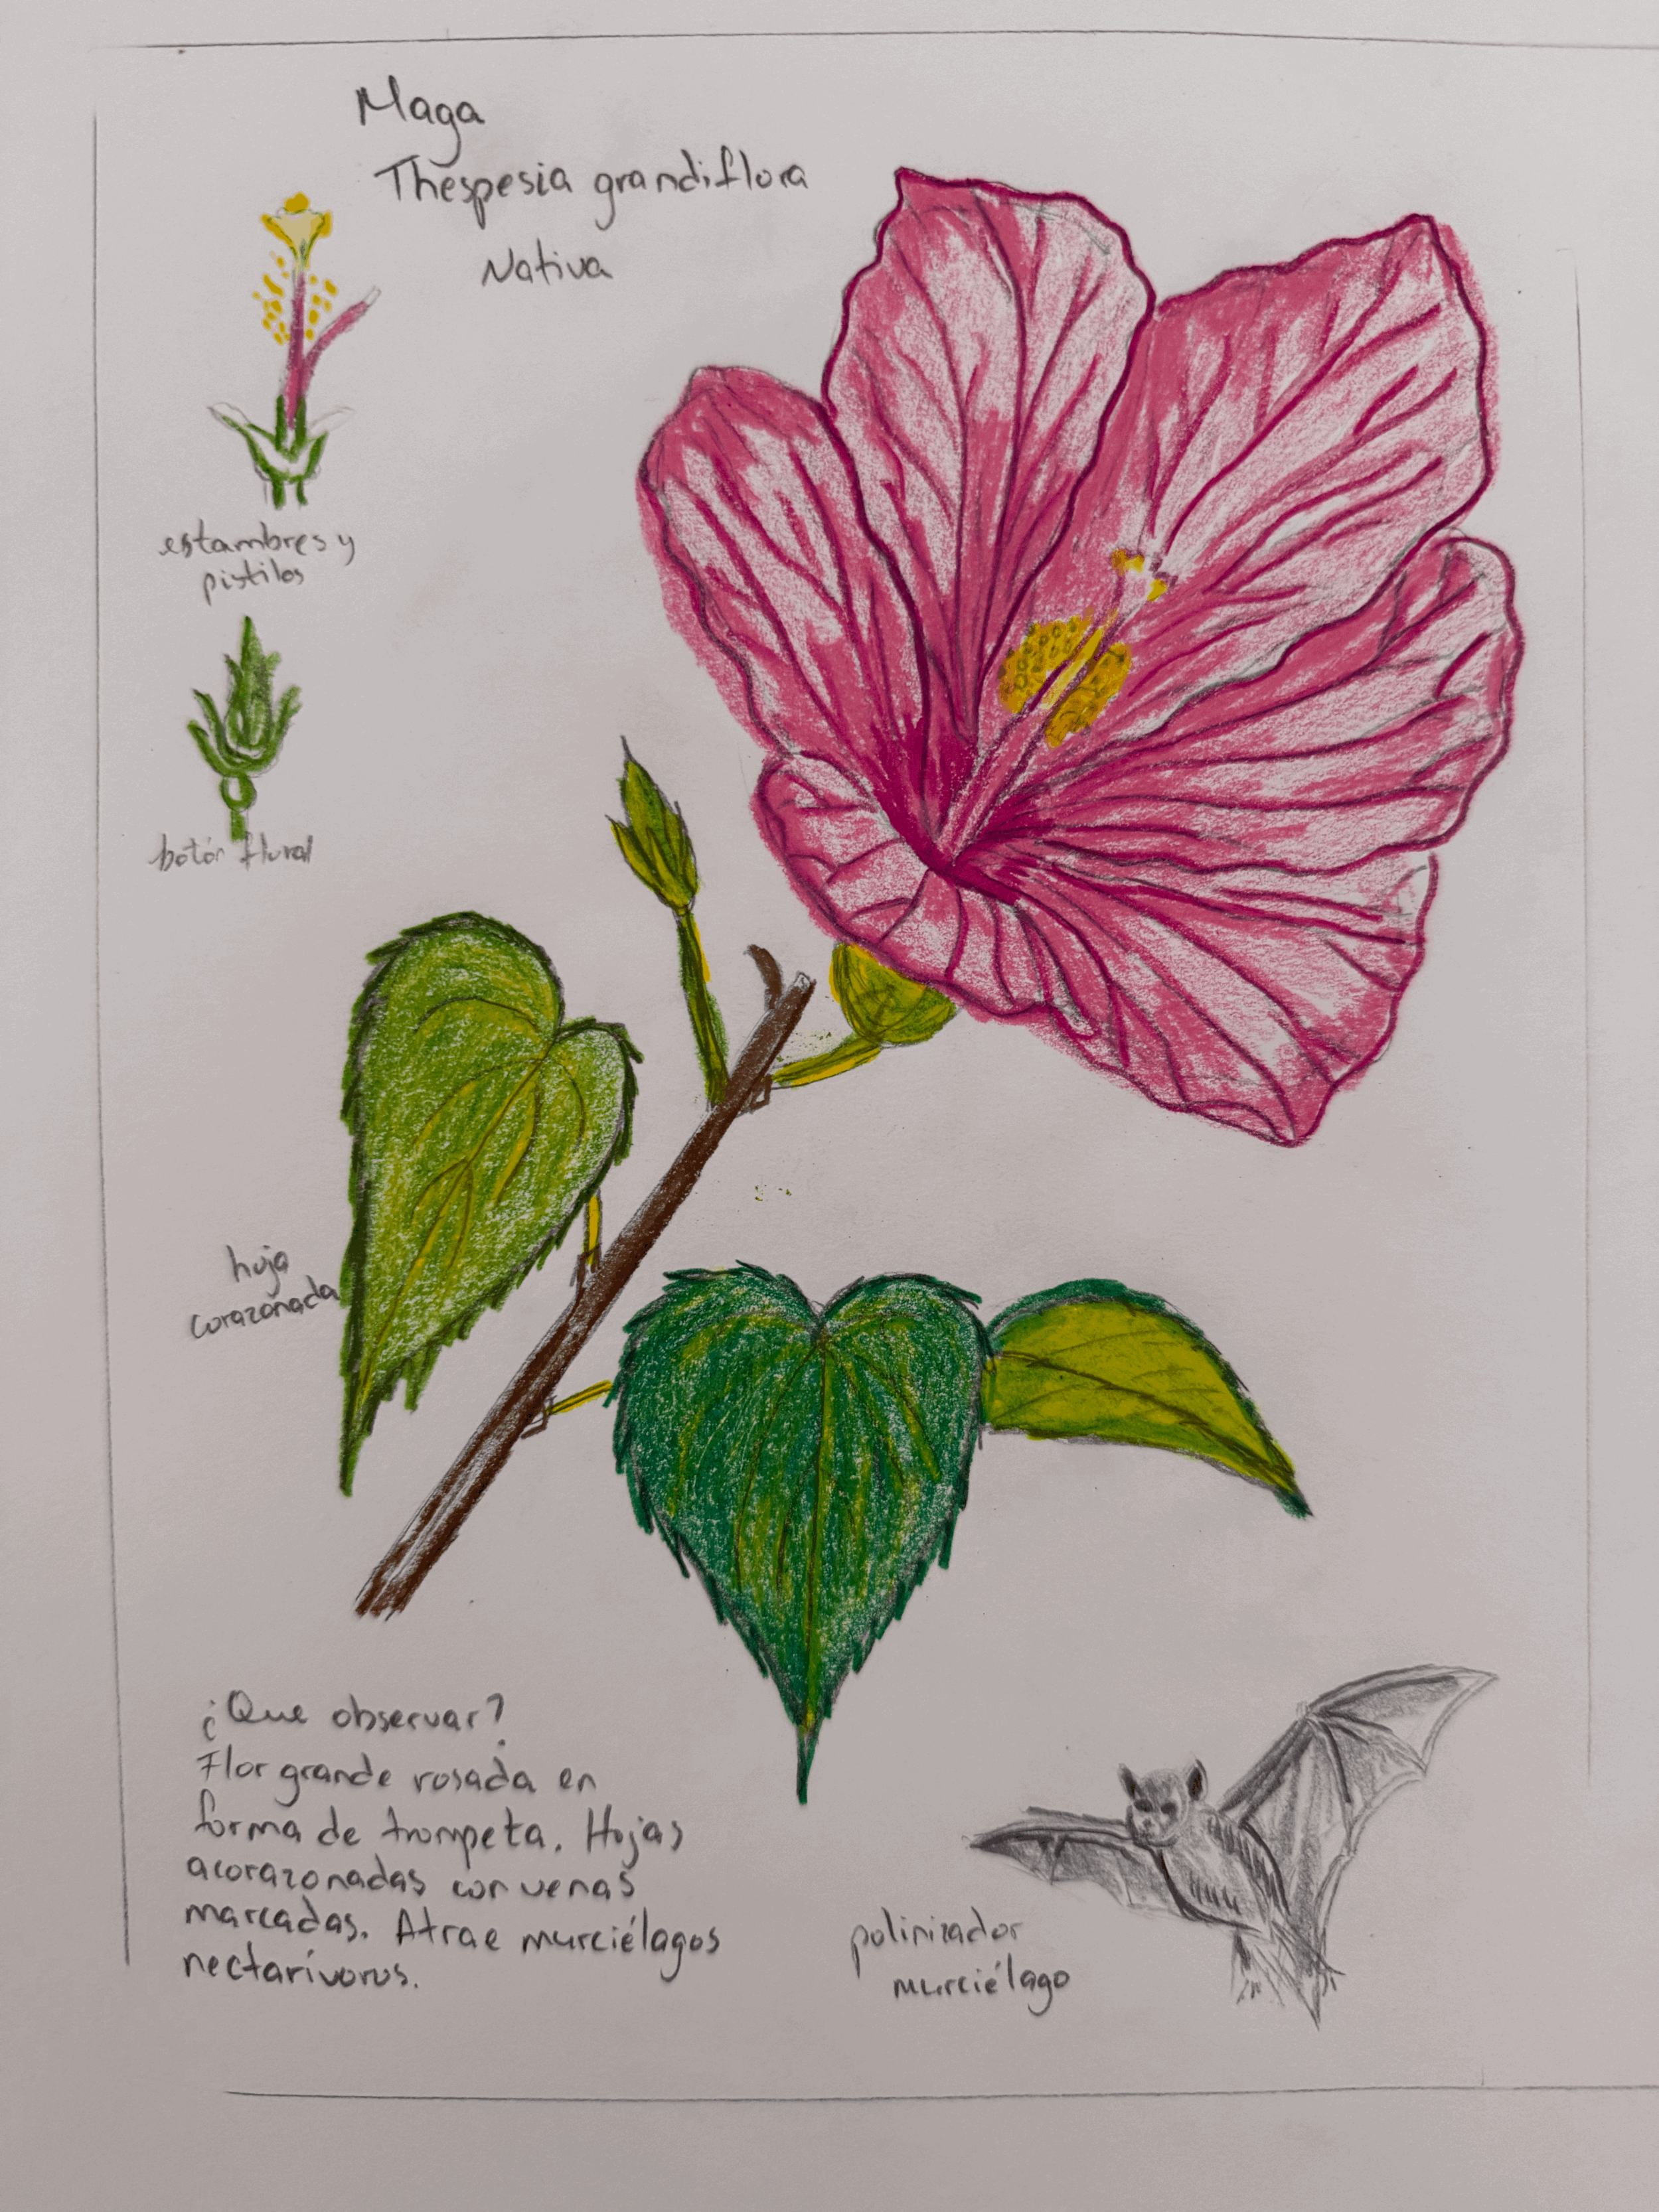 Maga
Thespesia grandiflora
Nativa
estambres y
pistilos
botón floral
hoja
corazonada
¿Que observar?
Flor grande rosada en
forma de trompeta. Hojas
acorazonadas con venas
marcadas. Atrae murciélagos
nectarívoros.
polinizador
murciélago